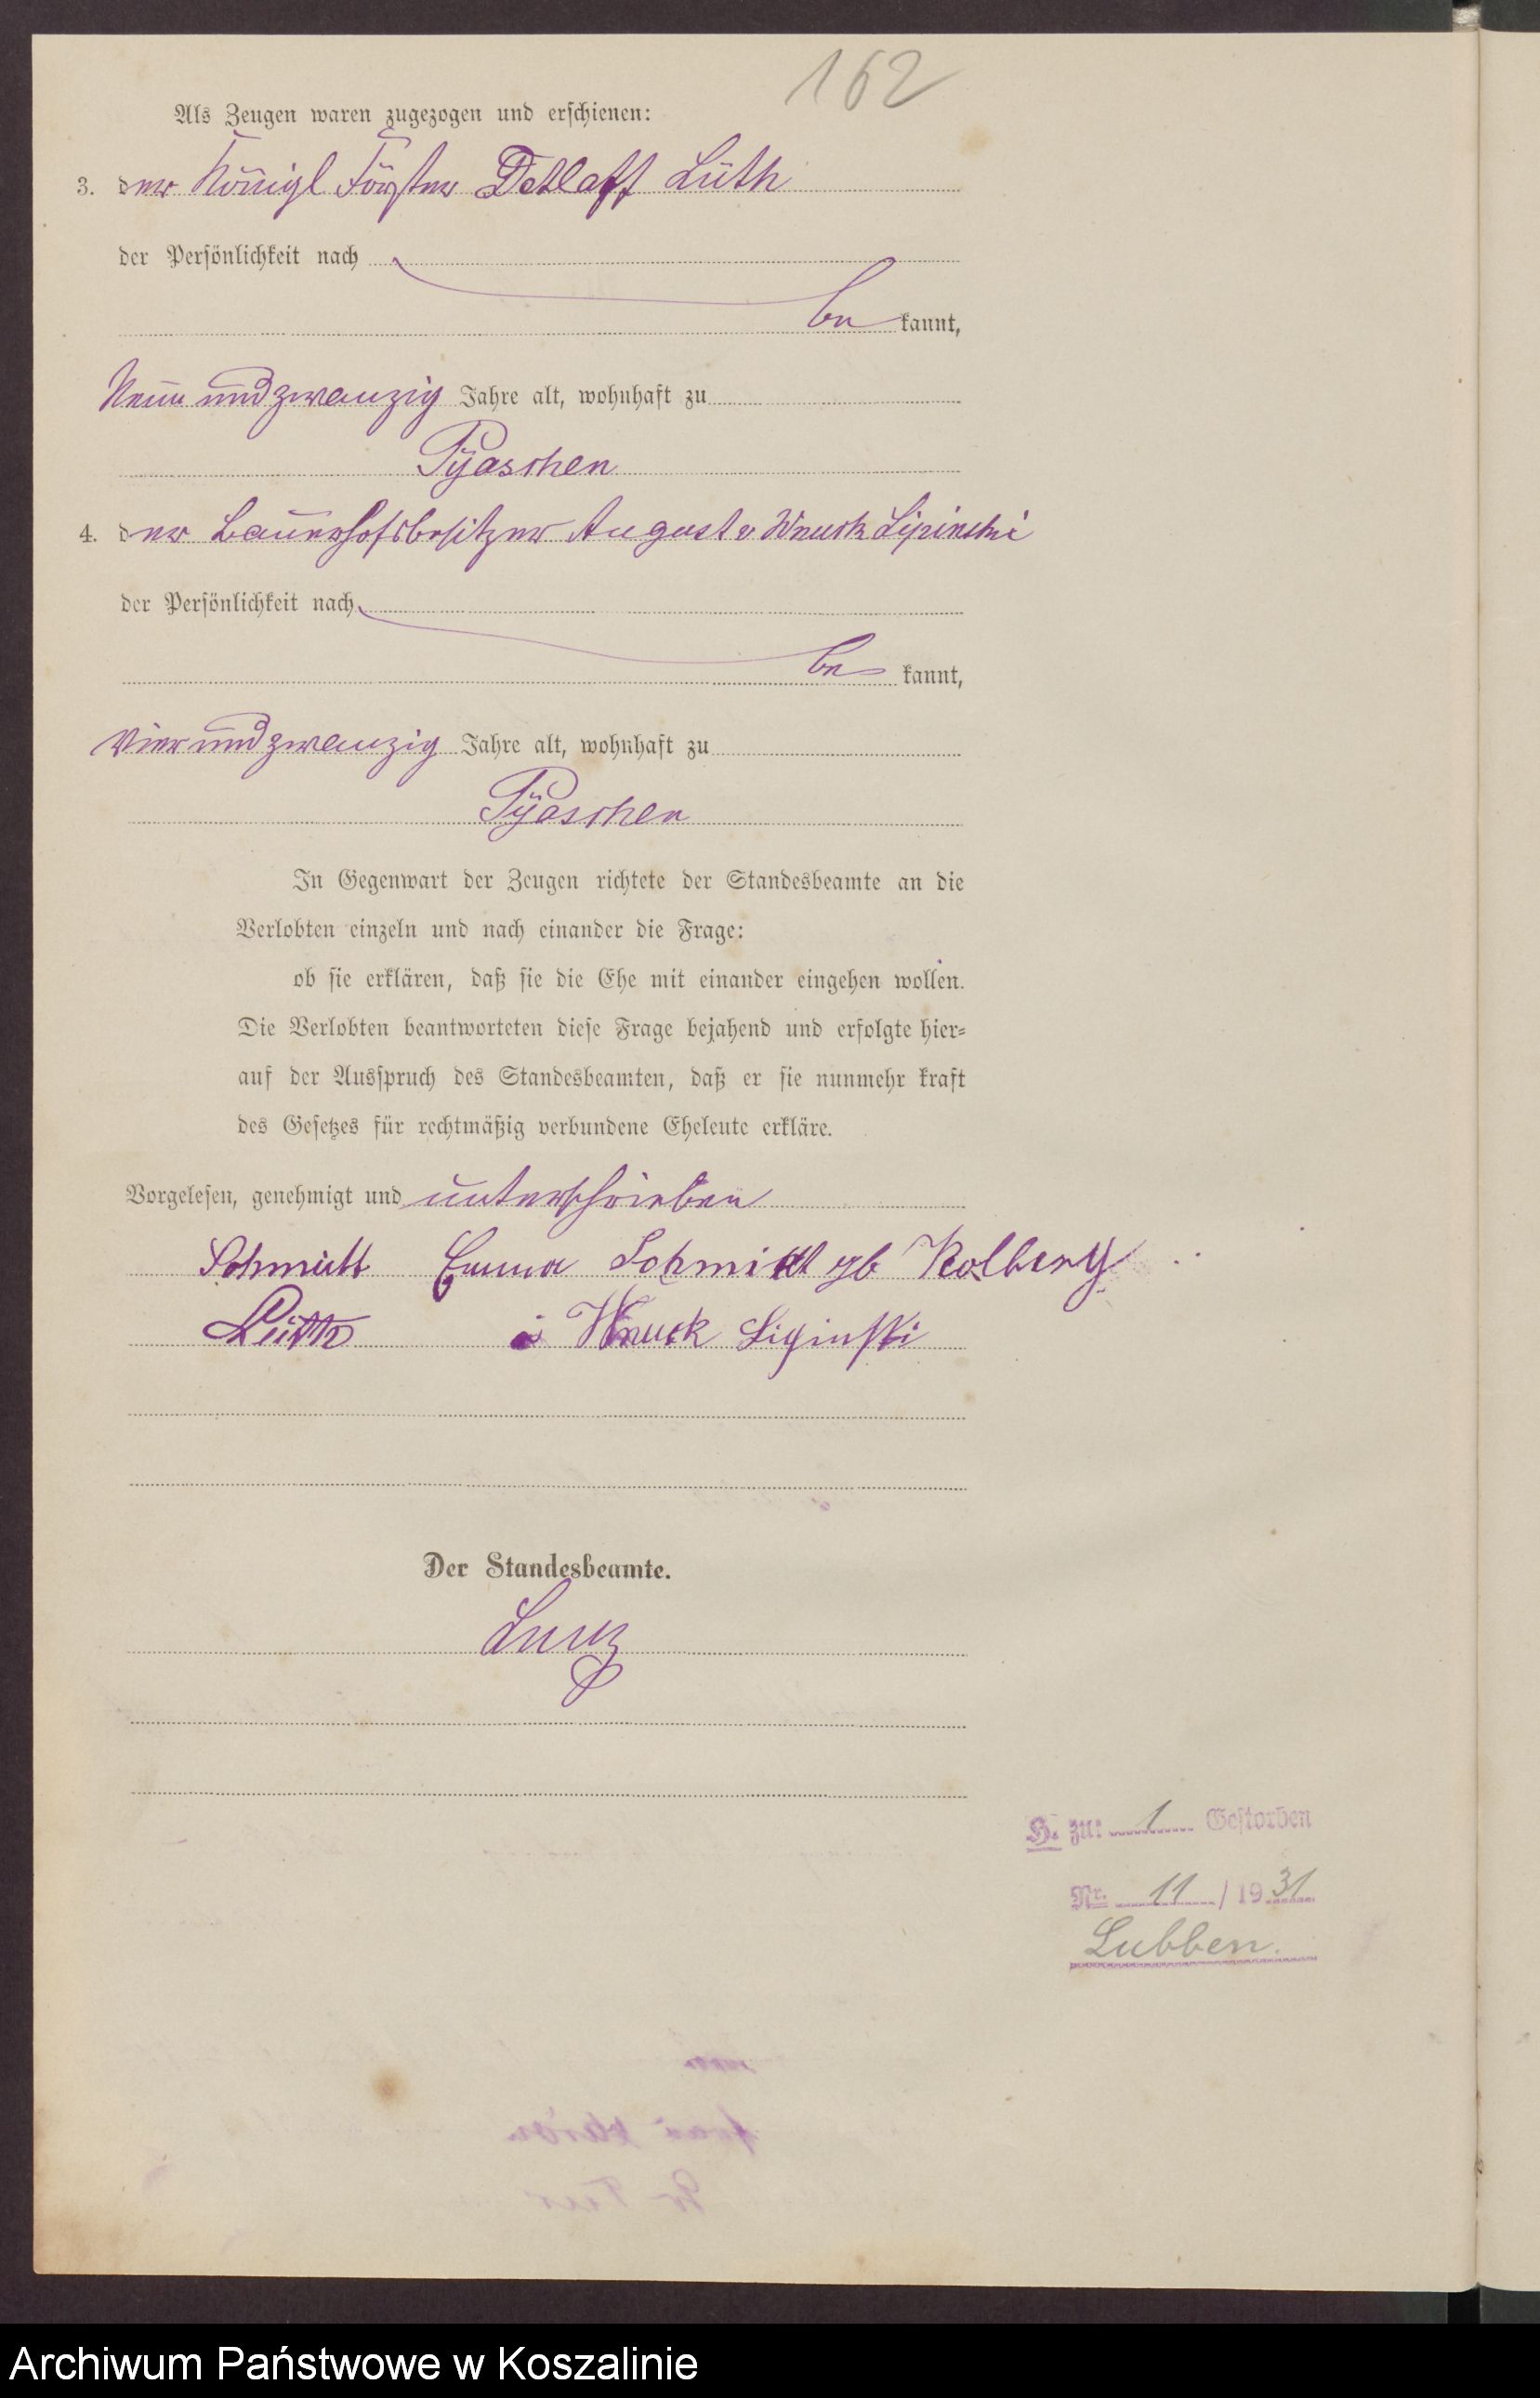 162
Als Zeugen waren zugezogen und erschienen:
3. der Königl Förster Detlaff Lüth
der Persönlichkeit nach
be kannt,
Neun und zwanzig Jahre alt, wohnhaft zu
Pÿaschen
4. der Bauerhofsbesitzer August v Wnuck Lipinski
der Persönlichkeit nach
be kannt,
Vier und zwanzig Jahre alt, wohnhaft zu
Pÿaschen
In Gegenwart der Zeugen richtete der Standesbeamte an die
Verlobten einzeln und nach einander die Frage:
ob sie erklären, daß sie die Ehe mit einander eingehen wollen.
Die Verlobten beantworteten diese Frage bejahend und erfolgte hier-
auf der Ausspruch des Standesbeamten, daß er sie nunmehr kraft
des Gesetzes für rechtmäßig verbundene Eheleute erkläre.
Vorgelesen, genehmigt und unterschrieben
Schmidt Emma Schmidt gb Kolberg
Lüth Wnuck Lipinski
Der Standesbeamte.
H. zu: 1 Gestorben
Nr. 11 / 1931
Lubben.
Archiwum Państwowe w Koszalinie